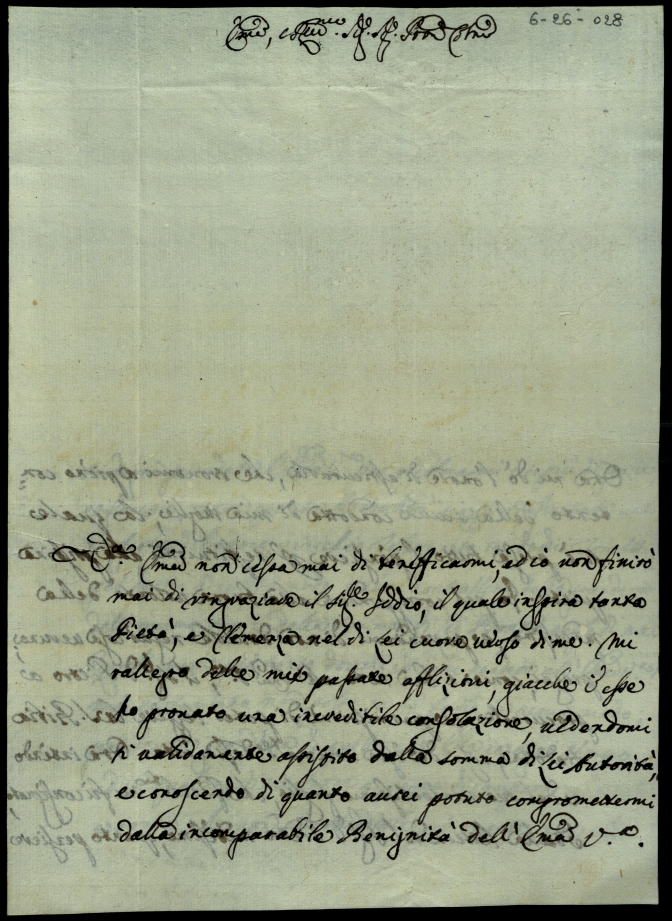 6-26-028
Em̃o, e Rmo. Sig. Sig. Pron Colmo
V. Em̃a non cessa mai di beneficarmi, ed io non finirò
mai di ringraziare il Sig.e Iddio, il quale inspira tanta
Pietà, e Clemenza nel di Lei cuore verso di me. Mi
rallegro delle mie passate afflizioni, giacché in esse
ho provato una incredibile consolazione, vedendomi
sì validamente assistito dalla somma di Lei Autorità,
e conoscendo di quanto avrei potuto compromettermi
dalla incomparabile Benignità dell' Em̃a V.a.